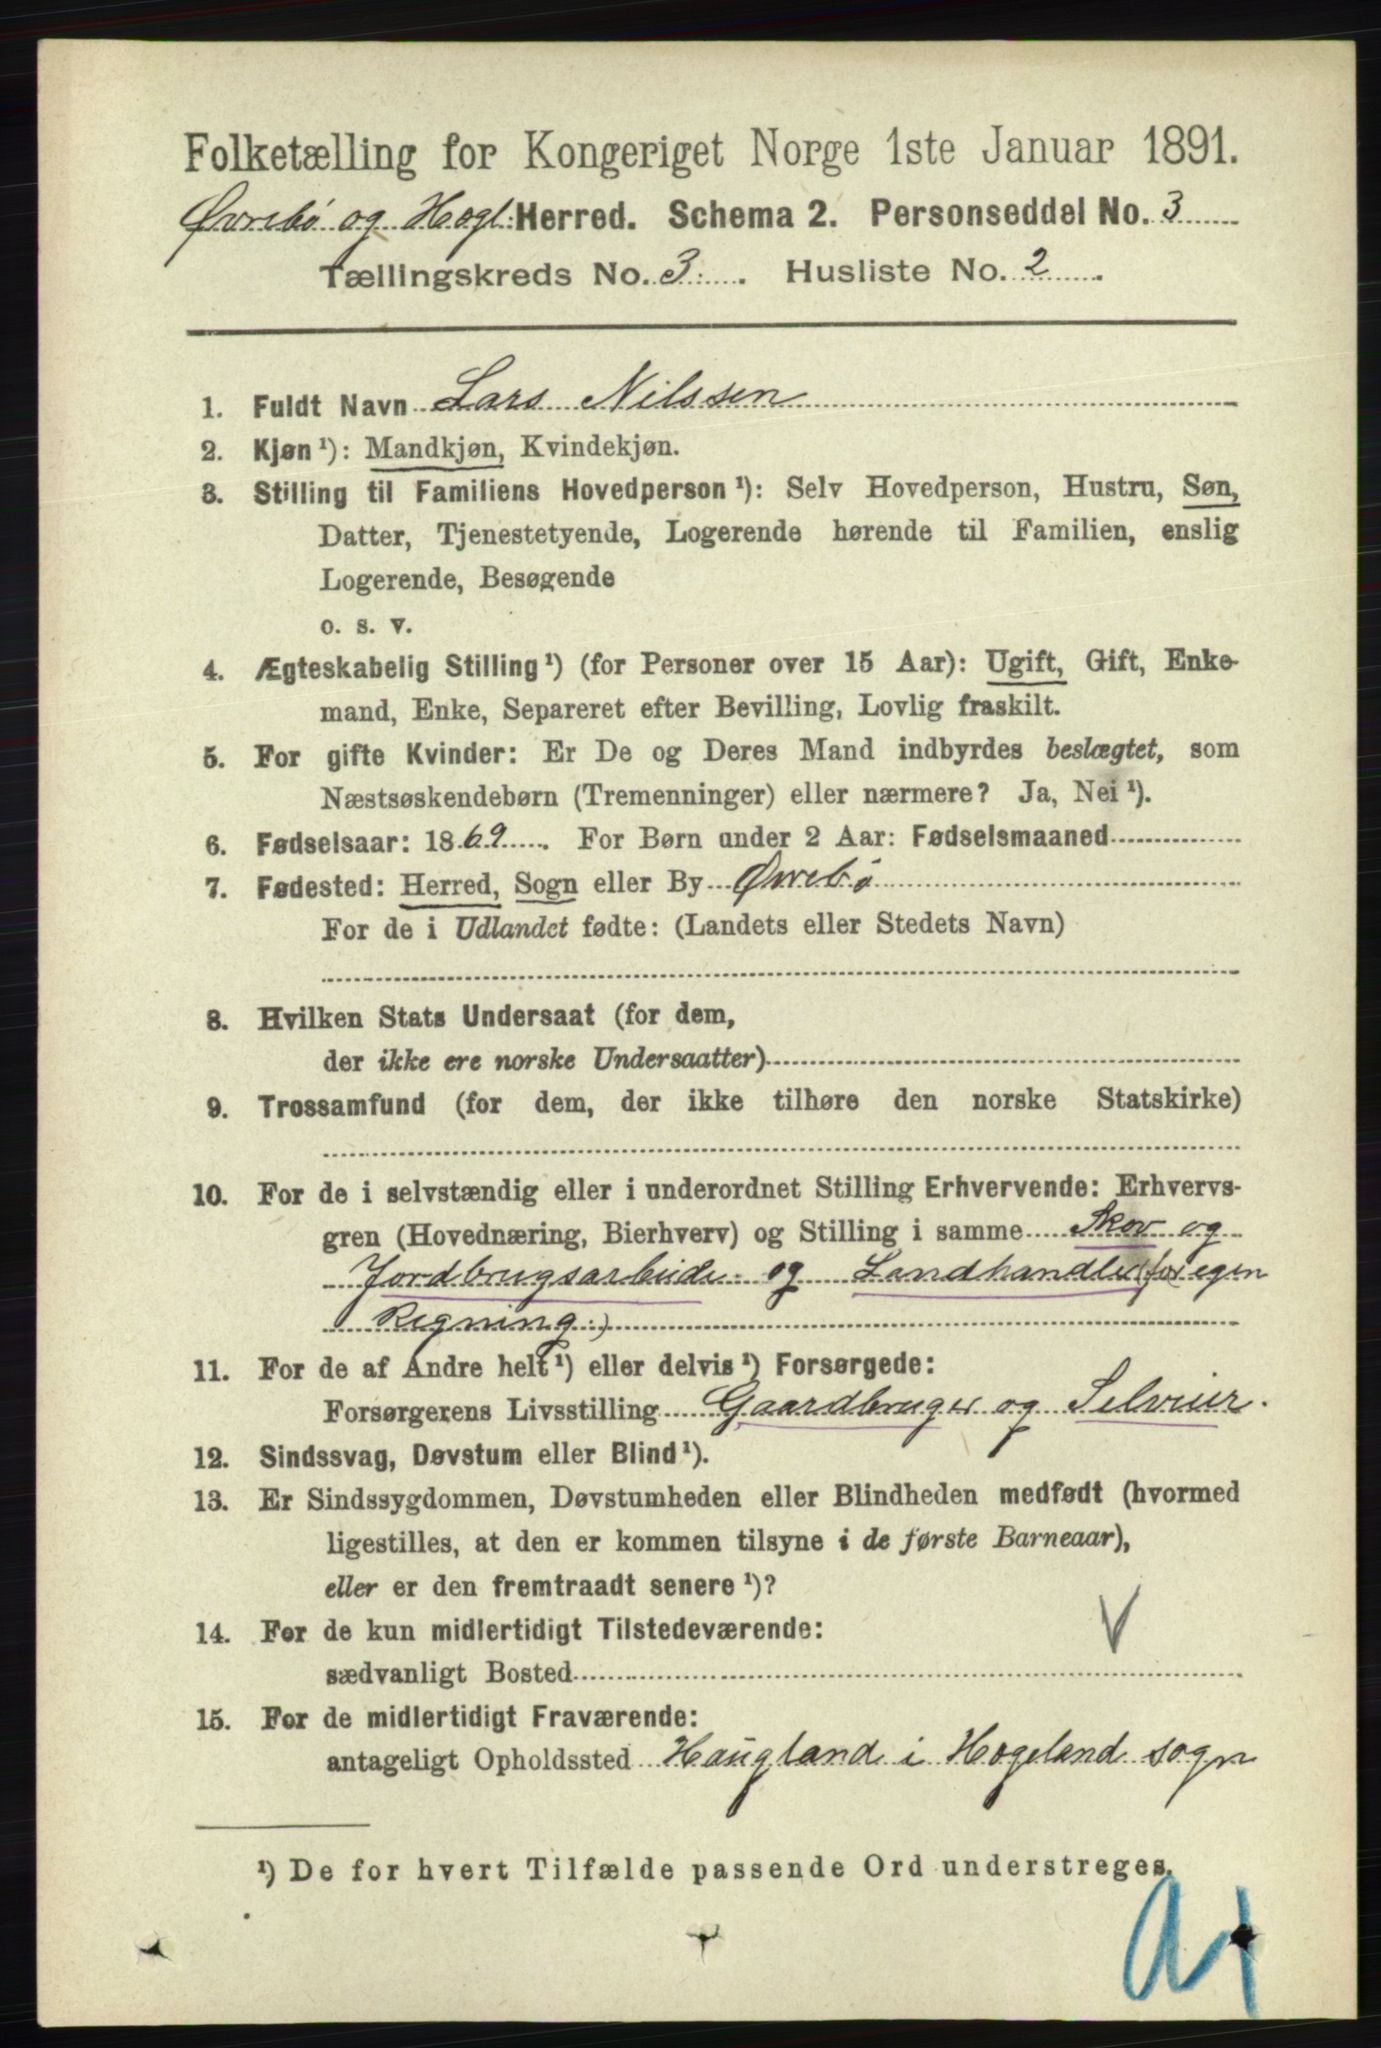 Folketælling for Kongeriget Norge 1ste Januar 1891.
Øvrebø og Hægl: Herred. Schema 2. Personseddel No. 3
Tællingskreds No. 3. Husliste No. 2
1. Fuldt Navn Lars Nilssen
2. Kjøn ¹): Mandkjøn, Kvindekjøn.
3. Stilling til Familiens Hovedperson ¹): Selv Hovedperson, Hustru, Søn,
Datter, Tjenestetyende, Logerende hørende til Familien, enslig
Logerende, Besøgende
o. s. v.
4. Ægteskabelig Stilling ¹) (for Personer over 15 Aar): Ugift, Gift, Enke-
mand, Enke, Separeret efter Bevilling, Lovlig fraskilt.
5. For gifte Kvinder: Er De og Deres Mand indbyrdes beslægtet, som
Næstsøskendebørn (Tremenninger) eller nærmere? Ja, Nei ¹).
6. Fødselsaar: 1869. For Børn under 2 Aar: Fødselsmaaned
7. Fødested: Herred, Sogn eller By Øvrebø
For de i Udlandet fødte: (Landets eller Stedets Navn)
8. Hvilken Stats Undersaat (for dem,
der ikke ere norske Undersaatter)
9. Trossamfund (for dem, der ikke tilhøre den norske Statskirke)
10. For de i selvstændig eller i underordnet Stilling Erhvervende: Erhvervs-
gren (Hovednæring, Bierhverv) og Stilling i samme Skov og
Jordbrugsarbeide og Landhandler (for egen
Regning:)
11. For de af Andre helt ¹) eller delvis ¹) Forsørgede:
Forsørgerens Livsstilling Gaardbruger og Selveier.
12. Sindssvag, Døvstum eller Blind ¹).
13. Er Sindssygdommen, Døvstumheden eller Blindheden medfødt (hvormed
ligestilles, at den er kommen tilsyne i de første Barneaar),
eller er den fremtraadt senere ¹)?
14. For de kun midlertidigt Tilstedeværende:
sædvanligt Bosted
15. For de midlertidigt Fraværende:
antageligt Opholdssted Haugland i Hægeland sogn
¹) De for hvert Tilfælde passende Ord understreges.